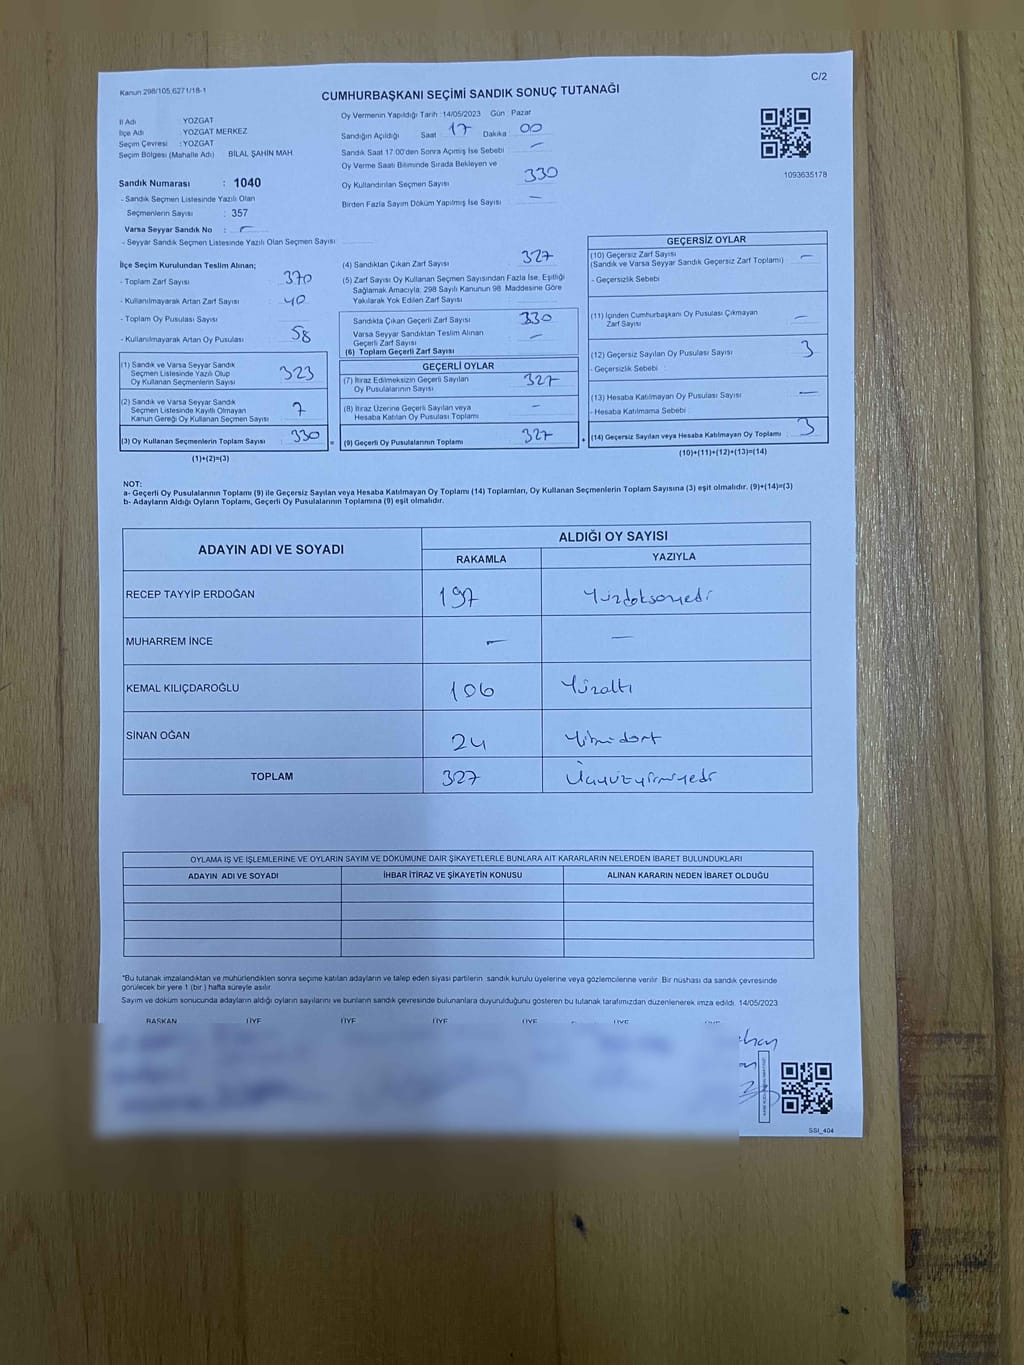 Kanun 298/105,6271/18-1
C/2
CUMHURBAŞKANI SEÇİMİ SANDIK SONUÇ TUTANAĞI
İl Adı YOZGAT
İlçe Adı YOZGAT MERKEZ
Seçim Çevresi : YOZGAT
Seçim Bölgesi (Mahalle Adı) BİLAL ŞAHİN MAH
Sandık Numarası : 1040
- Sandık Seçmen Listesinde Yazılı Olan
Seçmenlerin Sayısı : 357
Varsa Seyyar Sandık No : –
- Seyyar Sandık Seçmen Listesinde Yazılı Olan Seçmen Sayısı
Oy Vermenin Yapıldığı Tarih :14/05/2023 Gün : Pazar
Sandığın Açıldığı Saat 17 Dakika 00
Sandık Saat 17:00'den Sonra Açımış İse Sebebi –
Oy Verme Saati Bitiminde Sırada Bekleyen ve
Oy Kullandırılan Seçmen Sayısı 330
Birden Fazla Sayım Döküm Yapılmış İse Sayısı –
1093635178
İlçe Seçim Kurulundan Teslim Alınan;
- Toplam Zarf Sayısı : 370
- Kullanılmayarak Artan Zarf Sayısı : 40
- Toplam Oy Pusulası Sayısı :
- Kullanılmayarak Artan Oy Pusulası : 58
(1) Sandık ve Varsa Seyyar Sandık
Seçmen Listesinde Yazılı Olup
Oy Kullanan Seçmenlerin Sayısı : 323
(2) Sandık ve Varsa Seyyar Sandık
Seçmen Listesinde Kayıtlı Olmayan
Kanun Gereği Oy Kullanan Seçmen Sayısı : 7
(3) Oy Kullanan Seçmenlerin Toplam Sayısı : 330
(1)+(2)=(3)
(4) Sandıktan Çıkan Zarf Sayısı : 327
(5) Zarf Sayısı Oy Kullanan Seçmen Sayısından Fazla İse, Eşitliği
Sağlamak Amacıyla; 298 Sayılı Kanunun 98. Maddesine Göre
Yakılarak Yok Edilen Zarf Sayısı :
Sandıkta Çıkan Geçerli Zarf Sayısı : 330
Varsa Seyyar Sandıktan Teslim Alınan
Geçerli Zarf Sayısı : –
(6) Toplam Geçerli Zarf Sayısı
GEÇERLİ OYLAR
(7) İtiraz Edilmeksizin Geçerli Sayılan
Oy Pusulalarının Sayısı : 327
(8) İtiraz Üzerine Geçerli Sayılan veya
Hesaba Katılan Oy Pusulası Toplamı : –
= (9) Geçerli Oy Pusulalarının Toplamı : 327 +
GEÇERSİZ OYLAR
(10) Geçersiz Zarf Sayısı
(Sandık ve Varsa Seyyar Sandık Geçersiz Zarf Toplamı) : –
- Geçersizlik Sebebi
(11) İçinden Cumhurbaşkanı Oy Pusulası Çıkmayan
Zarf Sayısı : –
(12) Geçersiz Sayılan Oy Pusulası Sayısı : 3
- Geçersizlik Sebebi :
(13) Hesaba Katılmayan Oy Pusulası Sayısı : –
- Hesaba Katılmama Sebebi
(14) Geçersiz Sayılan veya Hesaba Katılmayan Oy Toplamı : 3
(10)+(11)+(12)+(13)=(14)
NOT:
a- Geçerli Oy Pusulalarının Toplamı (9) ile Geçersiz Sayılan veya Hesaba Katılmayan Oy Toplamı (14) Toplamları, Oy Kullanan Seçmenlerin Toplam Sayısına (3) eşit olmalıdır. (9)+(14)=(3)
b- Adayların Aldığı Oyların Toplamı, Geçerli Oy Pusulalarının Toplamına (9) eşit olmalıdır.
ADAYIN ADI VE SOYADI
ALDIĞI OY SAYISI
RAKAMLA YAZIYLA
RECEP TAYYİP ERDOĞAN 197 Yüzdoksanyedi
MUHARREM İNCE – –
KEMAL KILIÇDAROĞLU 106 Yüzaltı
SİNAN OĞAN 24 Yirmidört
TOPLAM 327 Üçyüzyirmiyedi
OYLAMA İŞ VE İŞLEMLERİNE VE OYLARIN SAYIM VE DÖKÜMÜNE DAİR ŞİKAYETLERLE BUNLARA AİT KARARLARIN NELERDEN İBARET BULUNDUKLARI
ADAYIN ADI VE SOYADI İHBAR İTİRAZ VE ŞİKAYETİN KONUSU ALINAN KARARIN NEDEN İBARET OLDUĞU
*Bu tutanak imzalandıktan ve mühürlendikten sonra seçime katılan adayların ve talep eden siyasi partilerin sandık kurulu üyelerine veya gözlemcilerine verilir. Bir nüshası da sandık çevresinde
görülecek bir yere 1 (bir ) hafta süreyle asılır.
Sayım ve döküm sonucunda adayların aldığı oyların sayılarını ve bunların sandık çevresinde bulunanlara duyurulduğunu gösteren bu tutanak tarafımızdan düzenlenerek imza edildi. 14/05/2023
BAŞKAN ÜYE ÜYE ÜYE ÜYE ÜYE ÜYE
SSI_404